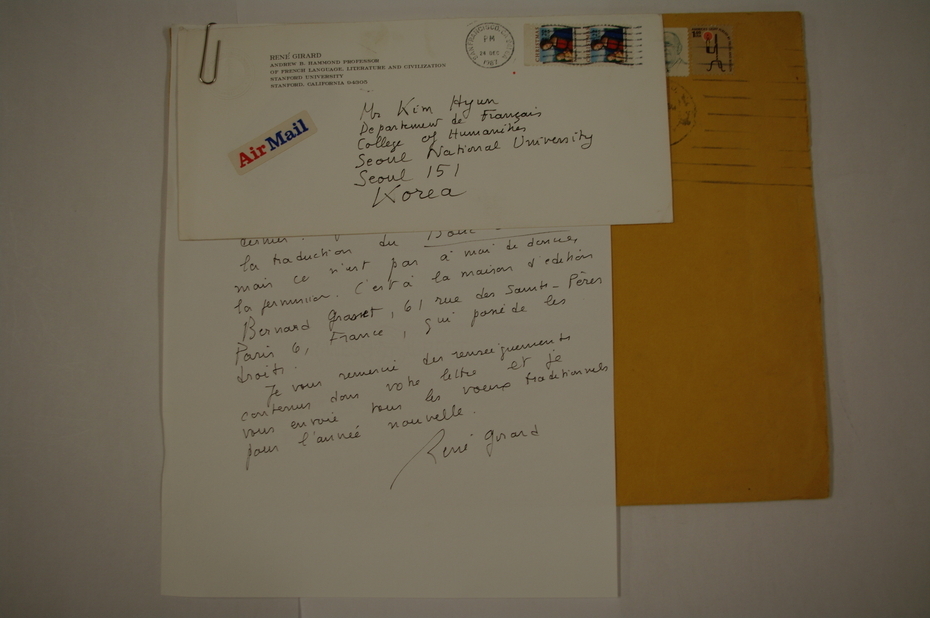 RENÉ GIRARD
ANDREW B. HAMMOND PROFESSOR
OF FRENCH LANGUAGE, LITERATURE AND CIVILIZATION
STANFORD UNIVERSITY
STANFORD, CALIFORNIA 94305
PM
Air Mail
Mr Kim Hyun
Departement de Français
College of Humanities
Seoul National University
Seoul 151
Korea
la traduction du Bouc
mais ce n'est pas à moi de donner
la permission. C'est à la maison d'édition
Bernard Grasset, 61 rue des Saints-Pères
Paris 6, France, qui possède les
droits.
Je vous remercie des renseignements
contenus dans votre lettre et je
vous envoie tous les voeux traditionnels
pour l'année nouvelle.
René Girard